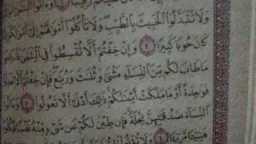 وَلَا تَتَبَدَّلُوا۟ ٱلْخَبِيثَ بِٱلطَّيِّبِ وَلَا تَأْكُلُوٓا۟ أَمْوَٰلَهُمْ
كَانَ حُوبًا كَبِيرًا ٢ وَإِنْ خِفْتُمْ أَلَّا تُقْسِطُوا۟ فِى ٱلْيَتَٰمَىٰ
مَا طَابَ لَكُم مِّنَ ٱلنِّسَآءِ مَثْنَىٰ وَثُلَٰثَ وَرُبَٰعَ فَإِنْ خِفْتُمْ
فَوَٰحِدَةً أَوْ مَا مَلَكَتْ أَيْمَٰنُكُمْ ذَٰلِكَ أَدْنَىٰٓ أَلَّا تَعُولُوا۟ ٣
ٱلنِّسَآءَ صَدُقَٰتِهِنَّ نِحْلَةً فَإِن طِبْنَ لَكُمْ عَن شَىْءٍ مِّنْهُ
هَنِيٓـًٔا مَّرِيٓـًٔا